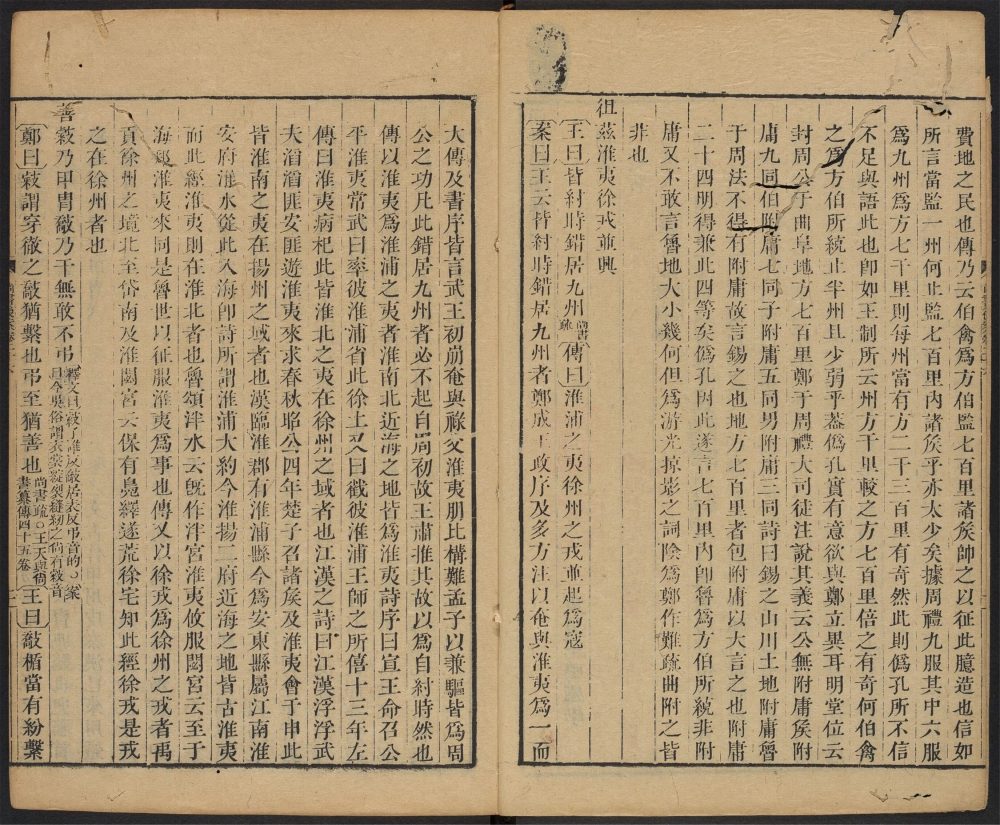 費地之民也傳乃云伯禽爲方伯監七百里諸矦帥之以征此臆造也信如
所言當監一州何止監七百里內諸矦乎亦太少矣據周禮九服其中六服
爲九州爲方七千里則每州當有方二千三百里有奇然此則僞孔所不信
不足與語此也卽如王制所云州方千里較之方七百里倍之有奇何伯禽
之爲方伯所統止半州且少弱乎葢僞孔實有意欲與鄭立異耳明堂位云
封周公于曲阜地方七百里鄭于周禮大司徒注說其義云公無附庸矦附
庸九同伯附庸七同子附庸五同男附庸三同詩曰錫之山川土地附庸魯
于周法不得有附庸故言錫之也地方七百里者包附庸以大言之也附庸
二十四明得兼此四等矣僞孔因此遂言七百里內卽魯爲方伯所統非附
庸又不敢言魯地大小幾何但爲游光掠影之詞陰爲鄭作難疏曲附之皆
非也
徂茲淮夷徐戎並興
王曰皆紂時錯居九州尙書疏傳曰淮浦之夷徐州之戎並起爲寇
案曰王云皆紂時錯居九州者鄭成王政序及多方注以奄與淮夷爲一而
大傳及書序皆言武王初崩奄與祿父淮夷朋比構難孟子以兼驅皆爲周
公之功凡此錯居九州者必不起自周初故王肅推其故以爲自紂時然也
傳以淮夷爲淮浦之夷者淮南北近海之地皆爲淮夷詩序曰宣王命召公
平淮夷常武曰率彼淮浦省此徐土又曰截彼淮浦王師之所僖十三年左
傳曰淮夷病杞此皆淮北之夷在徐州之域者也江漢之詩曰江漢浮浮武
夫滔滔匪安匪遊淮夷來求春秋昭公四年楚子召諸矦及淮夷會于申此
皆淮南之夷在揚州之域者也漢臨淮郡有淮浦縣今爲安東縣屬江南淮
安府淮水從此入海卽詩所謂淮浦大約今淮揚二府近海之地皆古淮夷
而此經淮夷則在淮北者也魯頌泮水云旣作泮宮淮夷攸服閟宮云至于
海邦淮夷來同是魯世以征服淮夷爲事也傳又以徐戎爲徐州之戎者禹
貢徐州之境北至岱南及淮閟宮云保有鳧繹遂荒徐宅知此經徐戎是戎
之在徐州者也
善敹乃甲冑敿乃干無敢不弔釋文曰敹了雕反敿居表反弔音的○案
曰今吳俗謂衣裳綻裂縫紉之尙有敹音
鄭曰敹謂穿徹之敿猶繫也弔至猶善也尙書疏○王天與尙
書纂傳四十五卷王曰敿楯當有紛繫